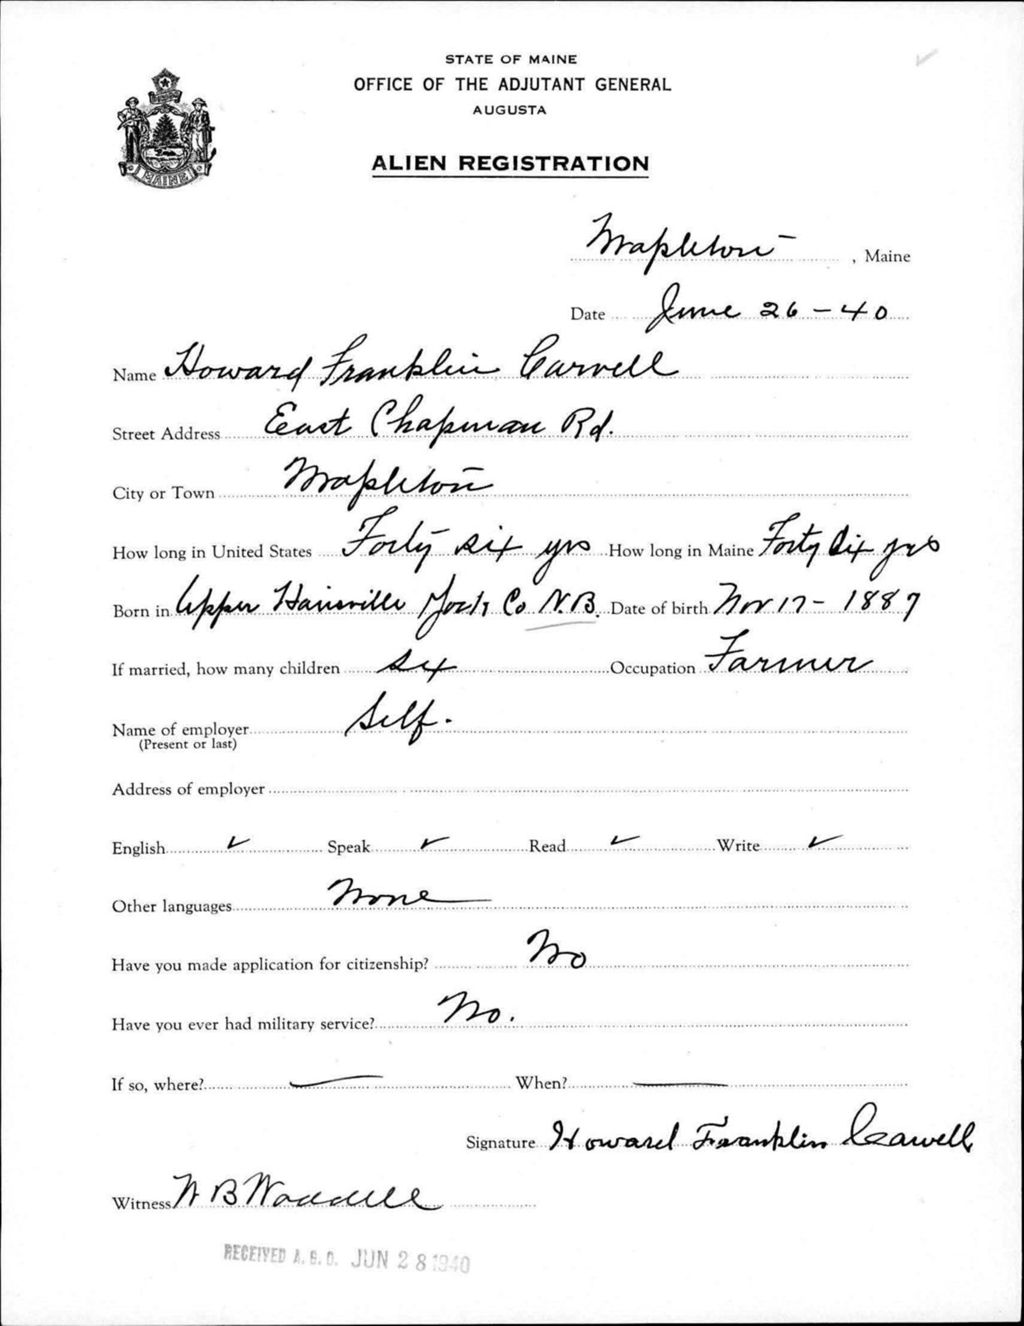 STATE OF MAINE
OFFICE OF THE ADJUTANT GENERAL
AUGUSTA
MAINE
ALIEN REGISTRATION
Mapleton, Maine
Date June 26-40
Name Howard Franklin Carvell
Street Address East Chapman Rd.
City or Town Mapleton
How long in United States Forty six yrs How long in Maine Forty Six yrs
Born in Upper Hainsville York Co N.B. Date of birth Nov 17- 1887
If married, how many children six Occupation Farmer
Name of employer Self.
(Present or last)
Address of employer
English ✓ Speak ✓ Read ✓ Write ✓
Other languages None
Have you made application for citizenship? No
Have you ever had military service? No.
If so, where? — When? —
Signature Howard Franklin Carvell
Witness B Waddell
RECEIVED A.G.O. JUN 28 1940